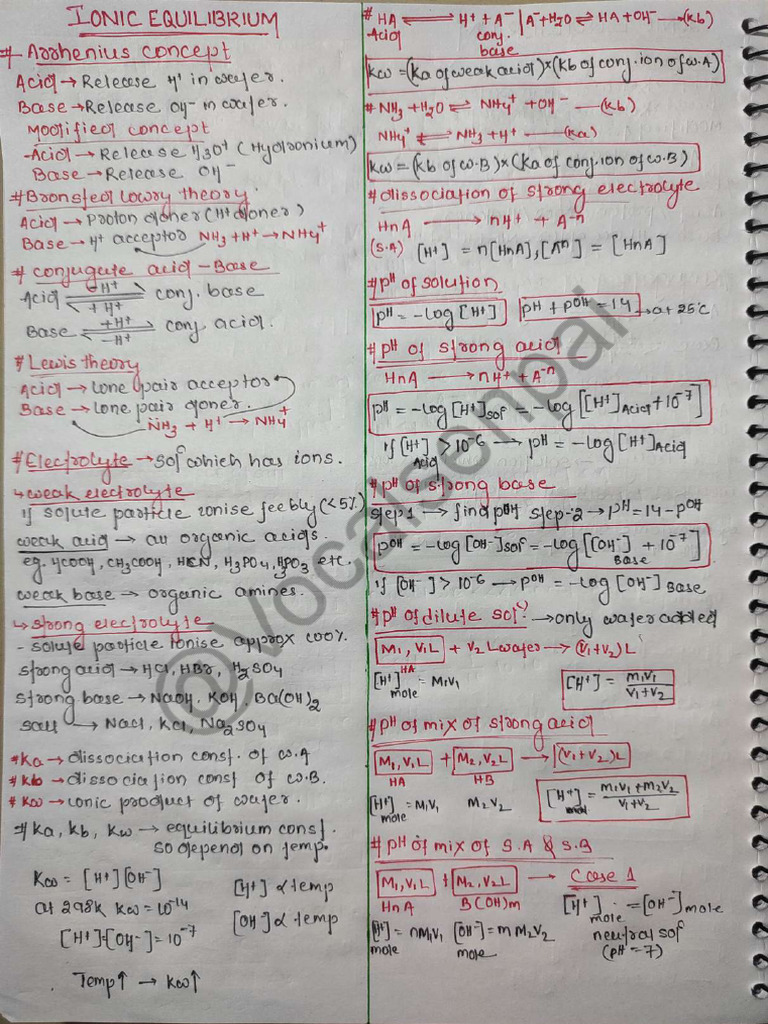 IONIC EQUILIBRIUM
# Arrhenius concept
Acid → Release H⁺ in water.
Base → Release OH⁻ in water.
Modified concept
Acid → Release H3O⁺ (Hydronium)
Base → Release OH⁻
# Bronsted lowry theory
Acid → Proton doner (H⁺ doner)
Base → H⁺ acceptor NH3 + H⁺ → NH4⁺
# conjugate acid - Base
Acid ⇌ conj. base
-H⁺
+H⁺
Base ⇌ conj. acid.
+H⁺
-H⁺
# Lewis theory
Acid → lone pair acceptor
Base → lone pair doner.
NH3 + H⁺ → NH4⁺
# Electrolyte → solⁿ which has ions.
↳ weak electrolyte
if solute particle ionise feebly (<5%)
weak acid → all organic acids.
eg. HCOOH, CH3COOH, HCN, H3PO4, H3PO3 etc.
weak base → organic amines.
↳ strong electrolyte
- solute particle ionise approx 100%.
strong acid → HCl, HBr, H2SO4
strong base → NaOH, KOH, Ba(OH)2
salt → NaCl, KCl, Na2SO4
# Ka → dissociation const. of w.A
# Kb → dissociation const of w.B.
# Kw → ionic product of water.
# Ka, Kb, Kw → equilibrium const.
so depend on temp.
Kw = [H⁺][OH⁻]
[H⁺] α temp
at 298K Kw = 10⁻¹⁴
[OH⁻] α temp
[H⁺]=[OH⁻] = 10⁻⁷
Temp↑ → Kw↑
# HA ⇌ H⁺ + A⁻ | A⁻ + H2O ⇌ HA + OH⁻ → (Kb)
Acid conj. base
Kw = (Ka of weak acid) × (Kb of conj. ion of w.A)
# NH3 + H2O ⇌ NH4⁺ + OH⁻ — (Kb)
NH4⁺ ⇌ NH3 + H⁺ — (Ka)
Kw = (Kb of w.B) × (Ka of conj. ion of w.B)
# dissociation of strong electrolyte
HnA → nH⁺ + A⁻ⁿ
(S.A) [H⁺] = n[HnA], [Aⁿ] = [HnA]
# pH of solution
pH = -log [H⁺] pH + pOH = 14 → at 25°C
# pH of strong acid
HnA → nH⁺ + A⁻ⁿ
pH = -log [H⁺]solⁿ = -log [[H⁺]Acid + 10⁻⁷]
if [H⁺]Acid > 10⁻⁶ → pH = -log [H⁺]Acid
# pH of strong base
step 1 → find pOH step-2 → pH = 14 - pOH
pOH = -log [OH⁻]solⁿ = -log [[OH⁻]Base + 10⁻⁷]
if [OH⁻] > 10⁻⁶ → pOH = -log [OH⁻]Base
# pH of dilute solⁿ → only water added
M1, V1L + V2 L water → (V1+V2)L
HA
[H⁺]mole = M1V1 [H⁺] = M1V1/V1+V2
# pH of mix of strong acid
M1, V1L + M2, V2L → (V1+V2)L
HA HB
[H⁺]mole = M1V1 M2V2 [H⁺]mol = M1V1+M2V2/V1+V2
# pH of mix of S.A & S.B
M1, V1L + M2, V2L → Case 1
HnA B(OH)m [H⁺]mole = [OH⁻]mole
[H⁺]mole = nM1V1 [OH⁻]mole = mM2V2 neutral solⁿ
(pH = 7)
@vocalsenpai